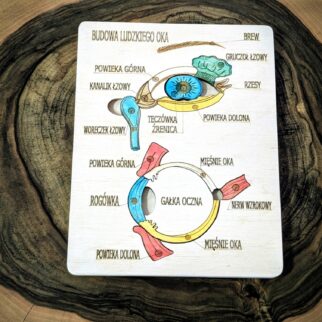 BUDOWA LUDZKIEGO OKA
BREW
GRUCZOŁ ŁZOWY
POWIEKA GÓRNA
KANALIK ŁZOWY
RZESY
WORECZEK ŁZOWY
TĘCZÓWKA
ŹRENICA
POWIEKA DOLONA
POWIEKA GÓRNA
MIĘŚNIE OKA
ROGÓWKA
GAŁKA OCZNA
NERW WZROKOWY
POWIEKA DOLONA
MIĘŚNIE OKA